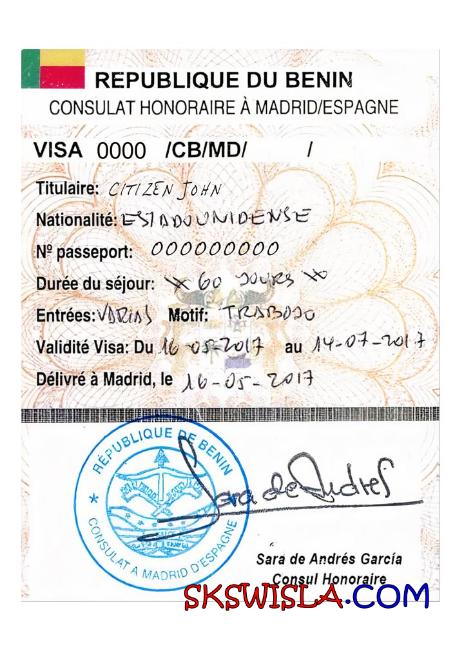 REPUBLIQUE DU BENIN
CONSULAT HONORAIRE À MADRID/ESPAGNE
VISA 0000 /CB/MD/ /
Titulaire: CITIZEN JOHN
Nationalité: ESTADOUNIDENSE
Nº passeport: 000000000
Durée du séjour: 60 JOURS
Entrées: VARIAS Motif: TRABAJO
Validité Visa: Du 16-05-2017 au 14-07-2017
Délivré à Madrid, le 16-05-2017
RÉPUBLIQUE DE BENIN
CONSULAT A MADRID D'ESPAGNE
Sara de Andrés
Sara de Andrés García
Consul Honoraire
SKSWISLA.COM